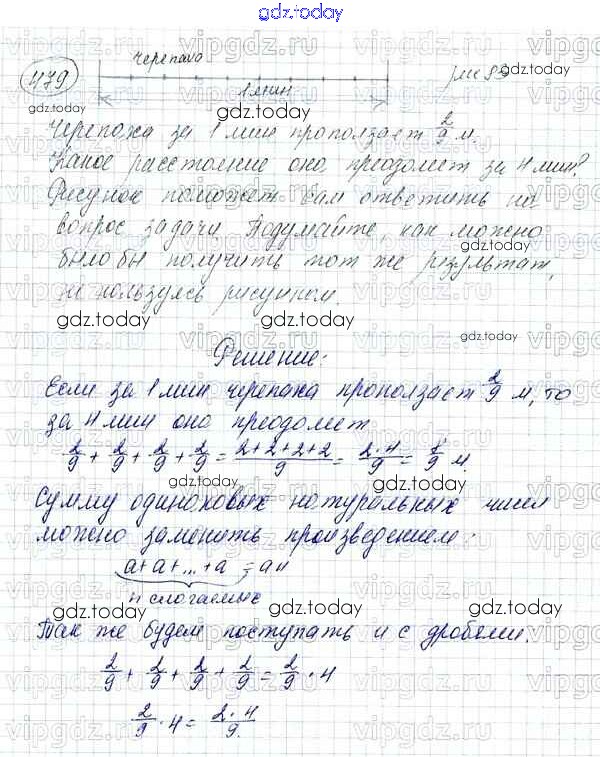 gdz.today
черепаха
479
рис 89
1 мин
Черепаха за 1 мин проползает 2/9 м.
Какое расстояние она преодолеет за 4 мин?
Рисунок поможет Вам ответить на
вопрос задачи. Подумайте, как можно
было бы получить тот же результат,
не пользуясь рисунком.
Решение:
Если за 1 мин черепаха проползает 2/9 м, то
за 4 мин она преодолеет
2/9 + 2/9 + 2/9 + 2/9 = 2+2+2+2/9 = 2·4/9 = 8/9 м.
Сумму одинаковых натуральных чисел
можно заменить произведением:
a+a+...+a = an
n слагаемых
Так же будем поступать и с дробями.
2/9 + 2/9 + 2/9 + 2/9 = 2/9 · 4
2/9 · 4 = 2·4/9.